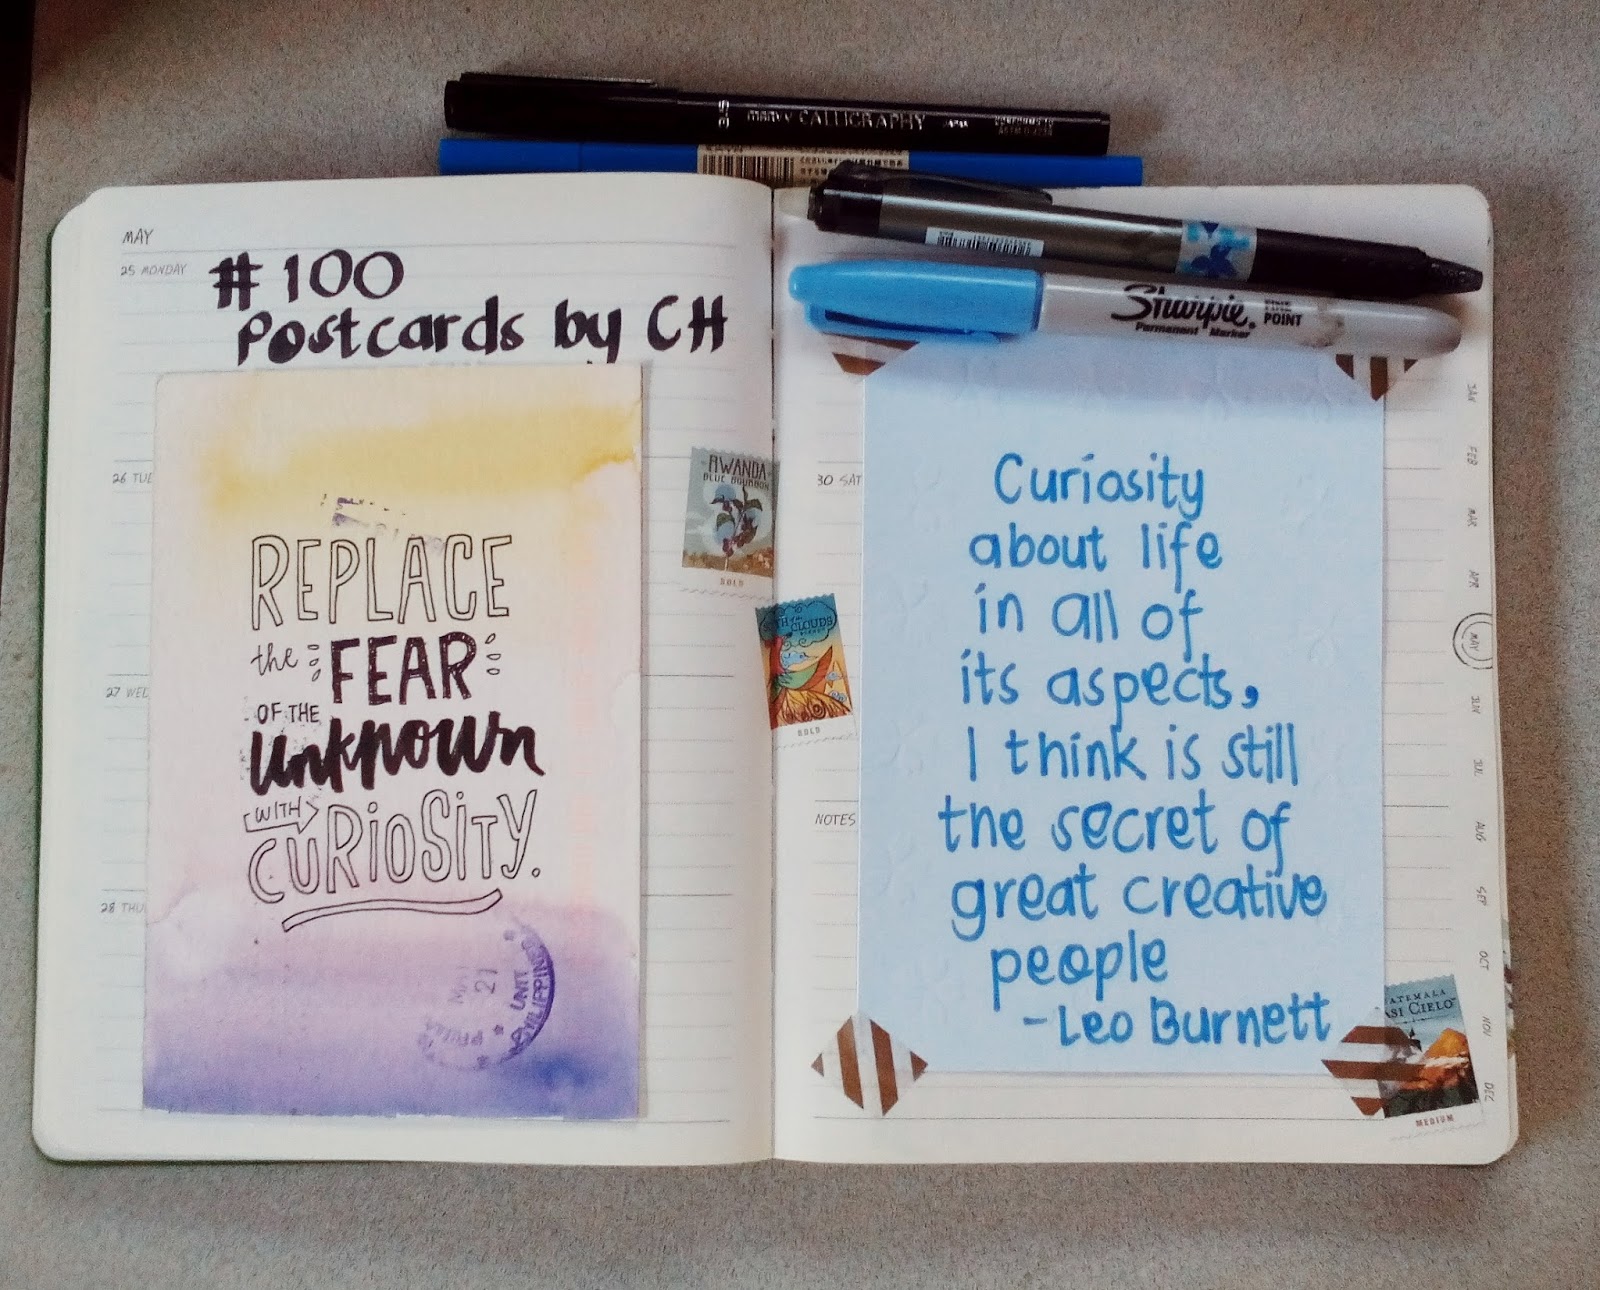 3.5 marvy CALLIGRAPHY
CONFORMS TO
ASTM D 4236
MAY
25 MONDAY
#100
Postcards by CH
26 TUE
27 WED
28 THU
REPLACE
the FEAR
OF THE
unknown
WITH
CURIOSITY.
21
UNIT
PHILIPPINES
RWANDA
BLUE BOURBON
BOLD
CLOUDS
BOLD
Sharpie.
FINE
POINT
Permanent Marker
30 SAT
NOTES
Curiosity
about life
in all of
its aspects,
I think is still
the secret of
great creative
people
-Leo Burnett
GUATEMALA
CASI CIELO
MEDIUM
JAN
FEB
MAR
APR
MAY
JUN
JUL
AUG
SEP
OCT
NOV
DEC